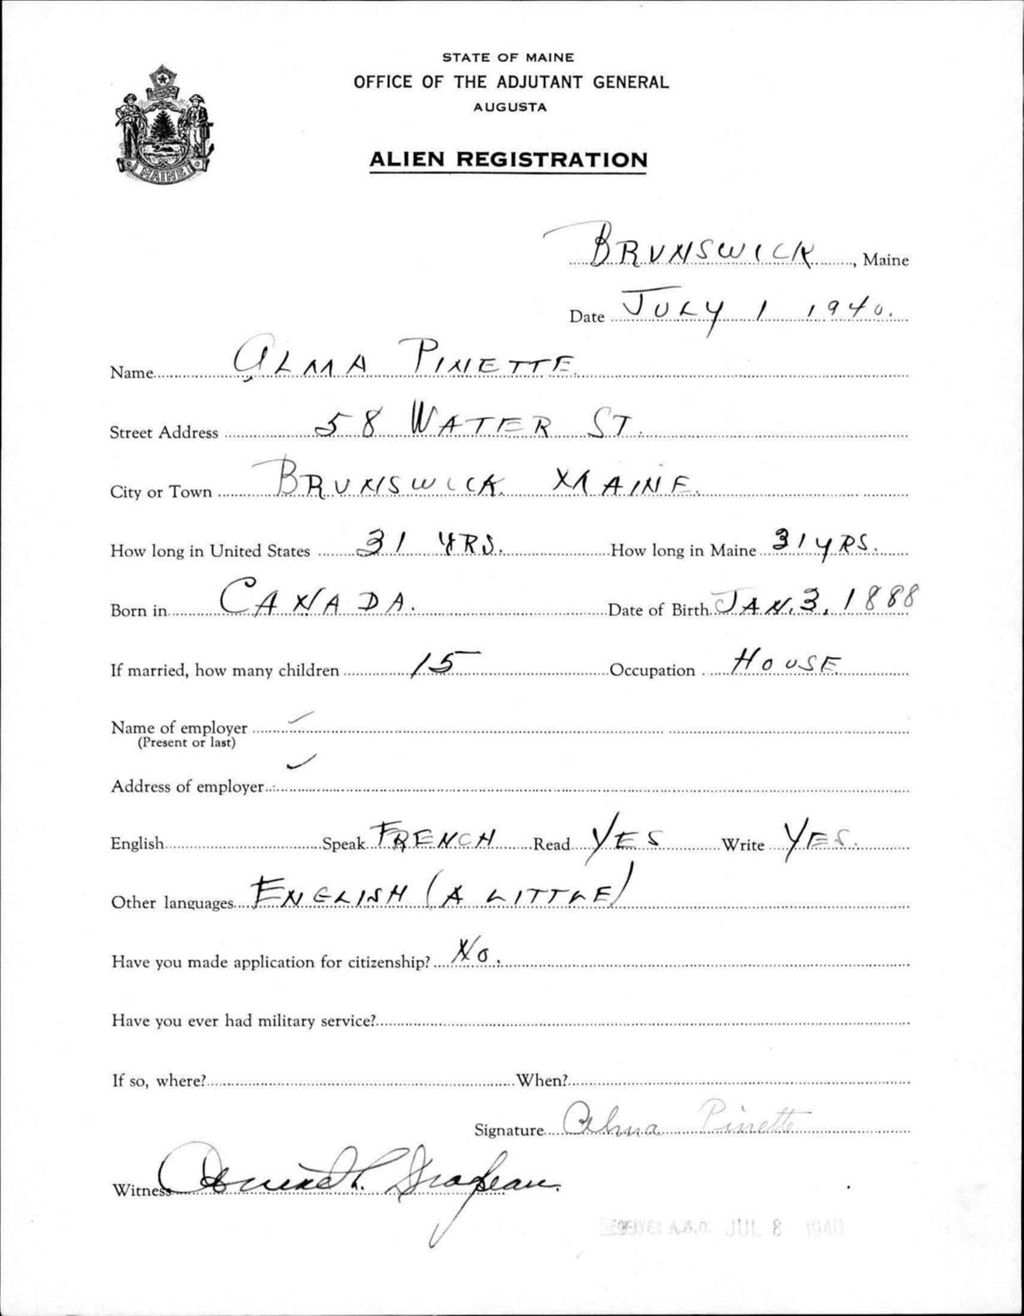 STATE OF MAINE
OFFICE OF THE ADJUTANT GENERAL
AUGUSTA
ALIEN REGISTRATION
MAINE
BRUNSWICK, Maine
Date JULY 1 1940.
Name ALMA PINETTE.
Street Address 58 WATER ST.
City or Town BRUNSWICK. MAINE.
How long in United States 31 YRS. How long in Maine 31 YRS.
Born in CANADA. Date of Birth JAN. 3, 1888
If married, how many children 15 Occupation HOUSE
Name of employer
(Present or last)
Address of employer
English Speak FRENCH Read YES Write YES.
Other languages ENGLISH (A LITTLE)
Have you made application for citizenship? NO.
Have you ever had military service?
If so, where? When?
Signature Alma Pinette
Witness
RECEIVED A.G.O. JUL 8 1940